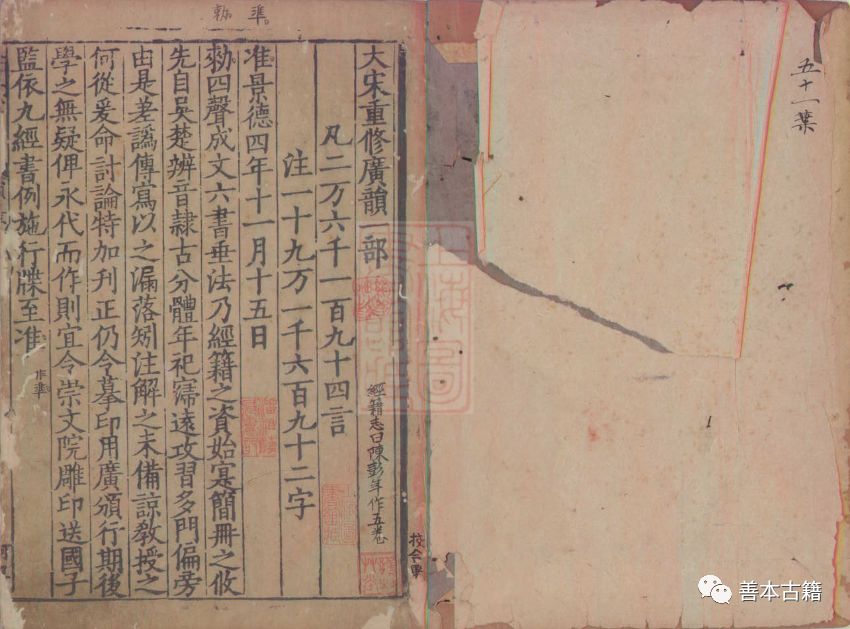 五十一葉
大宋重修廣韻一部
經籍志曰陳彭年作五卷
凡二万六千一百九十四言
注一十九万一千六百九十二字
准景德四年十一月十五日
準
勑四聲成文六書垂法乃經籍之資始寔簡冊之攸
先自吳楚辨音隸古分體年祀寖遠攻習多門偏旁
由是差譌傳寫以之漏落矧注解之未備諒敎授之
何從爰命討論特加刊正仍令摹印用廣頒行期後
學之無疑俾永代而作則宜令崇文院雕印送國子
監依九經書例施行牒至准
作準
善本古籍